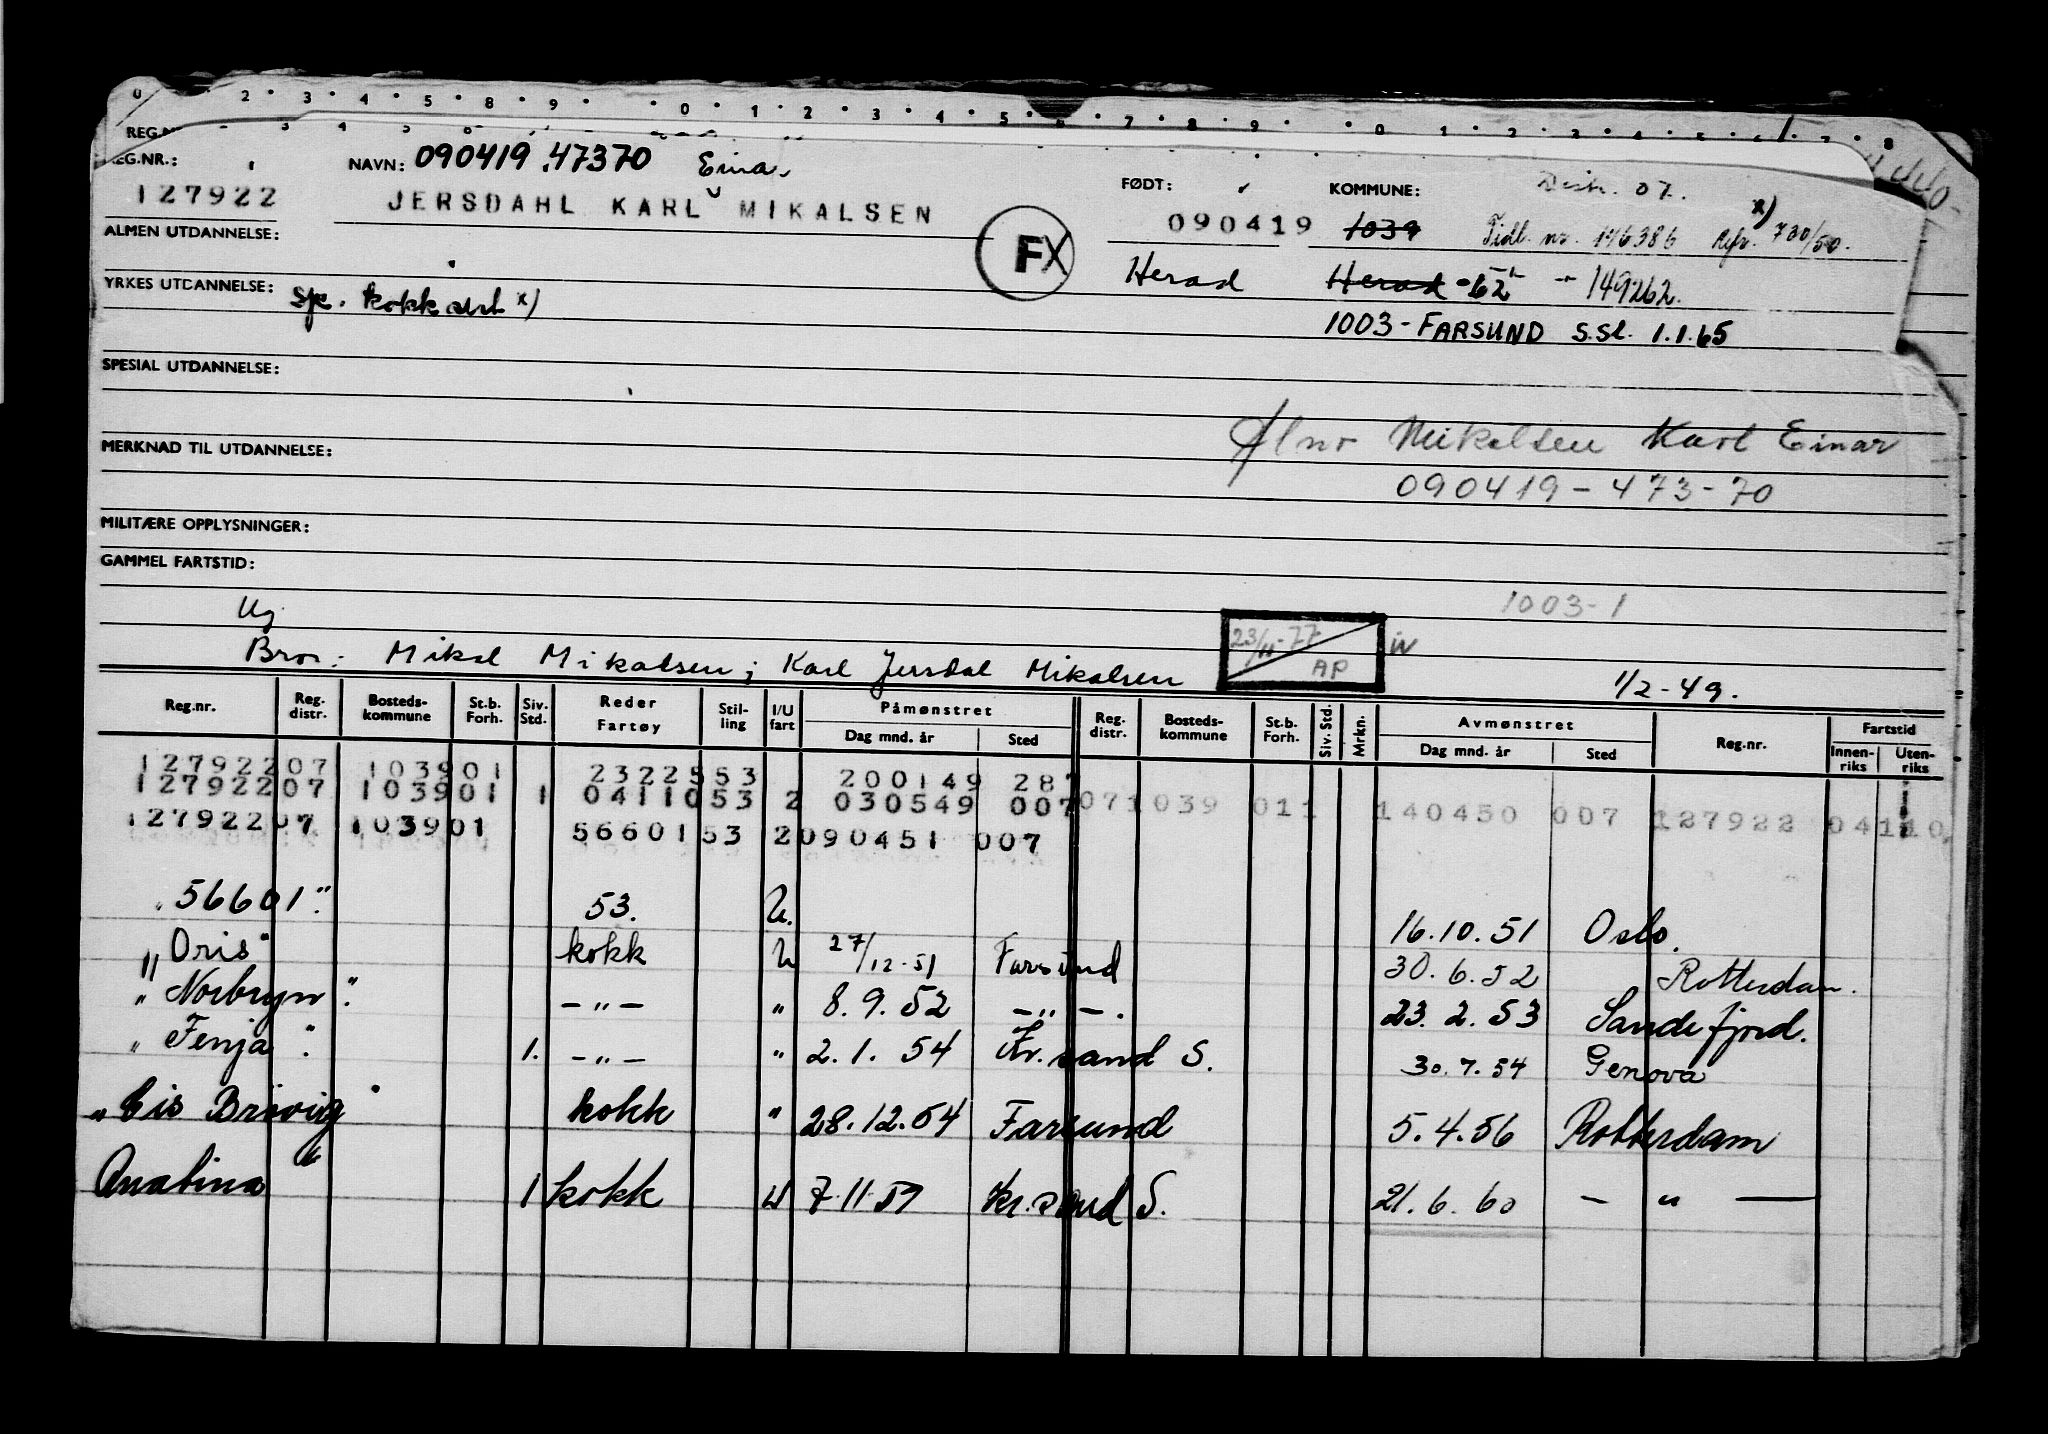 0 2 3 4 5 8 9 0 1 2 3 4 5 6 7 8 9 0 1 2 3 4 5 7 8
REG.NR.: NAVN: 090419.47370 Einar FØDT: KOMMUNE: Distr. 07.
127922 JERSDAHL KARL MIKALSEN 090419 1039 Tidl. nr. 146386 Refr. 730/50. x)
ALMEN UTDANNELSE: FX Herad Herad -62 - " - 149262.
YRKES UTDANNELSE: Sje. kokk x)
1003-FARSUND S.Sl. 1.1.65
SPESIAL UTDANNELSE:
Mikalsen Karl Einar
MERKNAD TIL UTDANNELSE:
090419-473-70
MILITÆRE OPPLYSNINGER:
GAMMEL FARTSTID:
Ug 1003-1
Bror: Mikal Mikalsen; Karl Jersdal Mikalsen 23/11-77 AP 1/2-49.
Reg.nr. Reg. distr. Bosteds-kommune St.b. Forh. Siv. Std. Reder Fartøy Stil-ling I/U fart Påmønstret Dag mnd. år Sted Reg. distr. Bosteds-kommune St.b. Forh. Siv. Std. Mrkn. Avmønstret Dag mnd. år Sted Reg.nr. Fartstid Innen-riks Uten-riks
127922 07 1039 01 23225 53 200149 287
127922 07 1039 01 1 04110 53 2 030549 007 07 1039 01 1 140450 007 127922 04110
127922 07 1039 01 56601 53 2 090451 007
"56601" 53. U. 16.10.51 Oslo.
"Oris" kokk U 27/12-51 Farsund 30.6.52 Rotterdam.
"Norbryn" -"- " 8.9.52 -"-. 23.2.53 Sandefjord.
"Fenja" 1. -"- " 2.1.54 Kr.sand S. 30.7.54 Genova
"Cis Brøvig" kokk " 28.12.54 Farsund 5.4.56 Rotterdam
Anatina 1 kokk U 7.11.59 Kr.sand S. 21.6.60 - " -